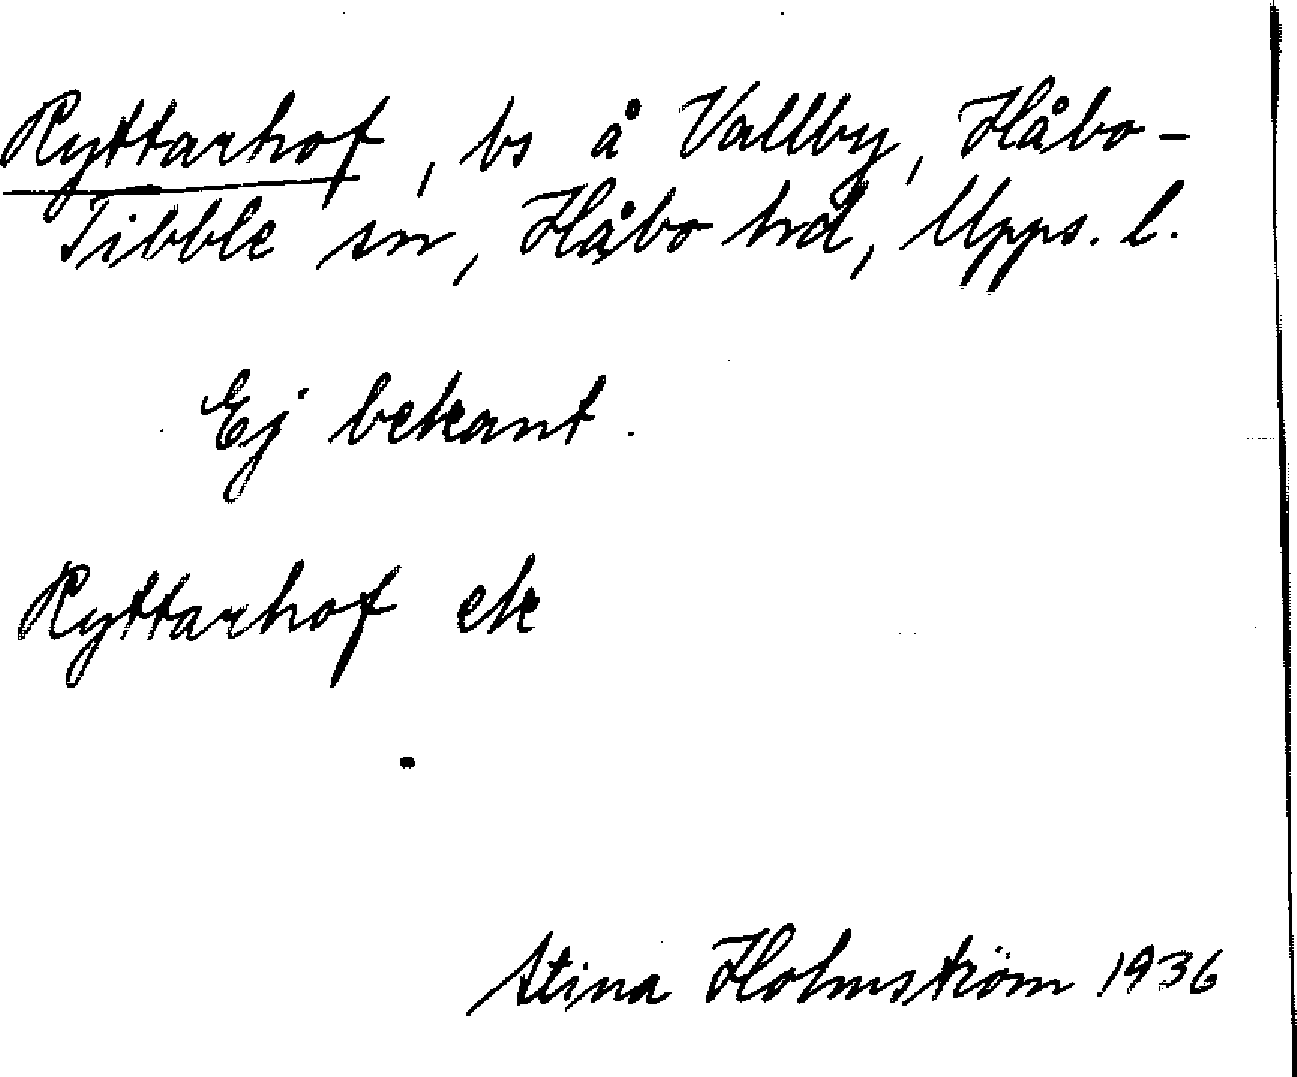 Ryttarhof, bs å Vallby, Håbo-
Tibble sn, Håbo hd, Upps. l.
Ej bekant.
Ryttarhof ek
Stina Holmström 1936